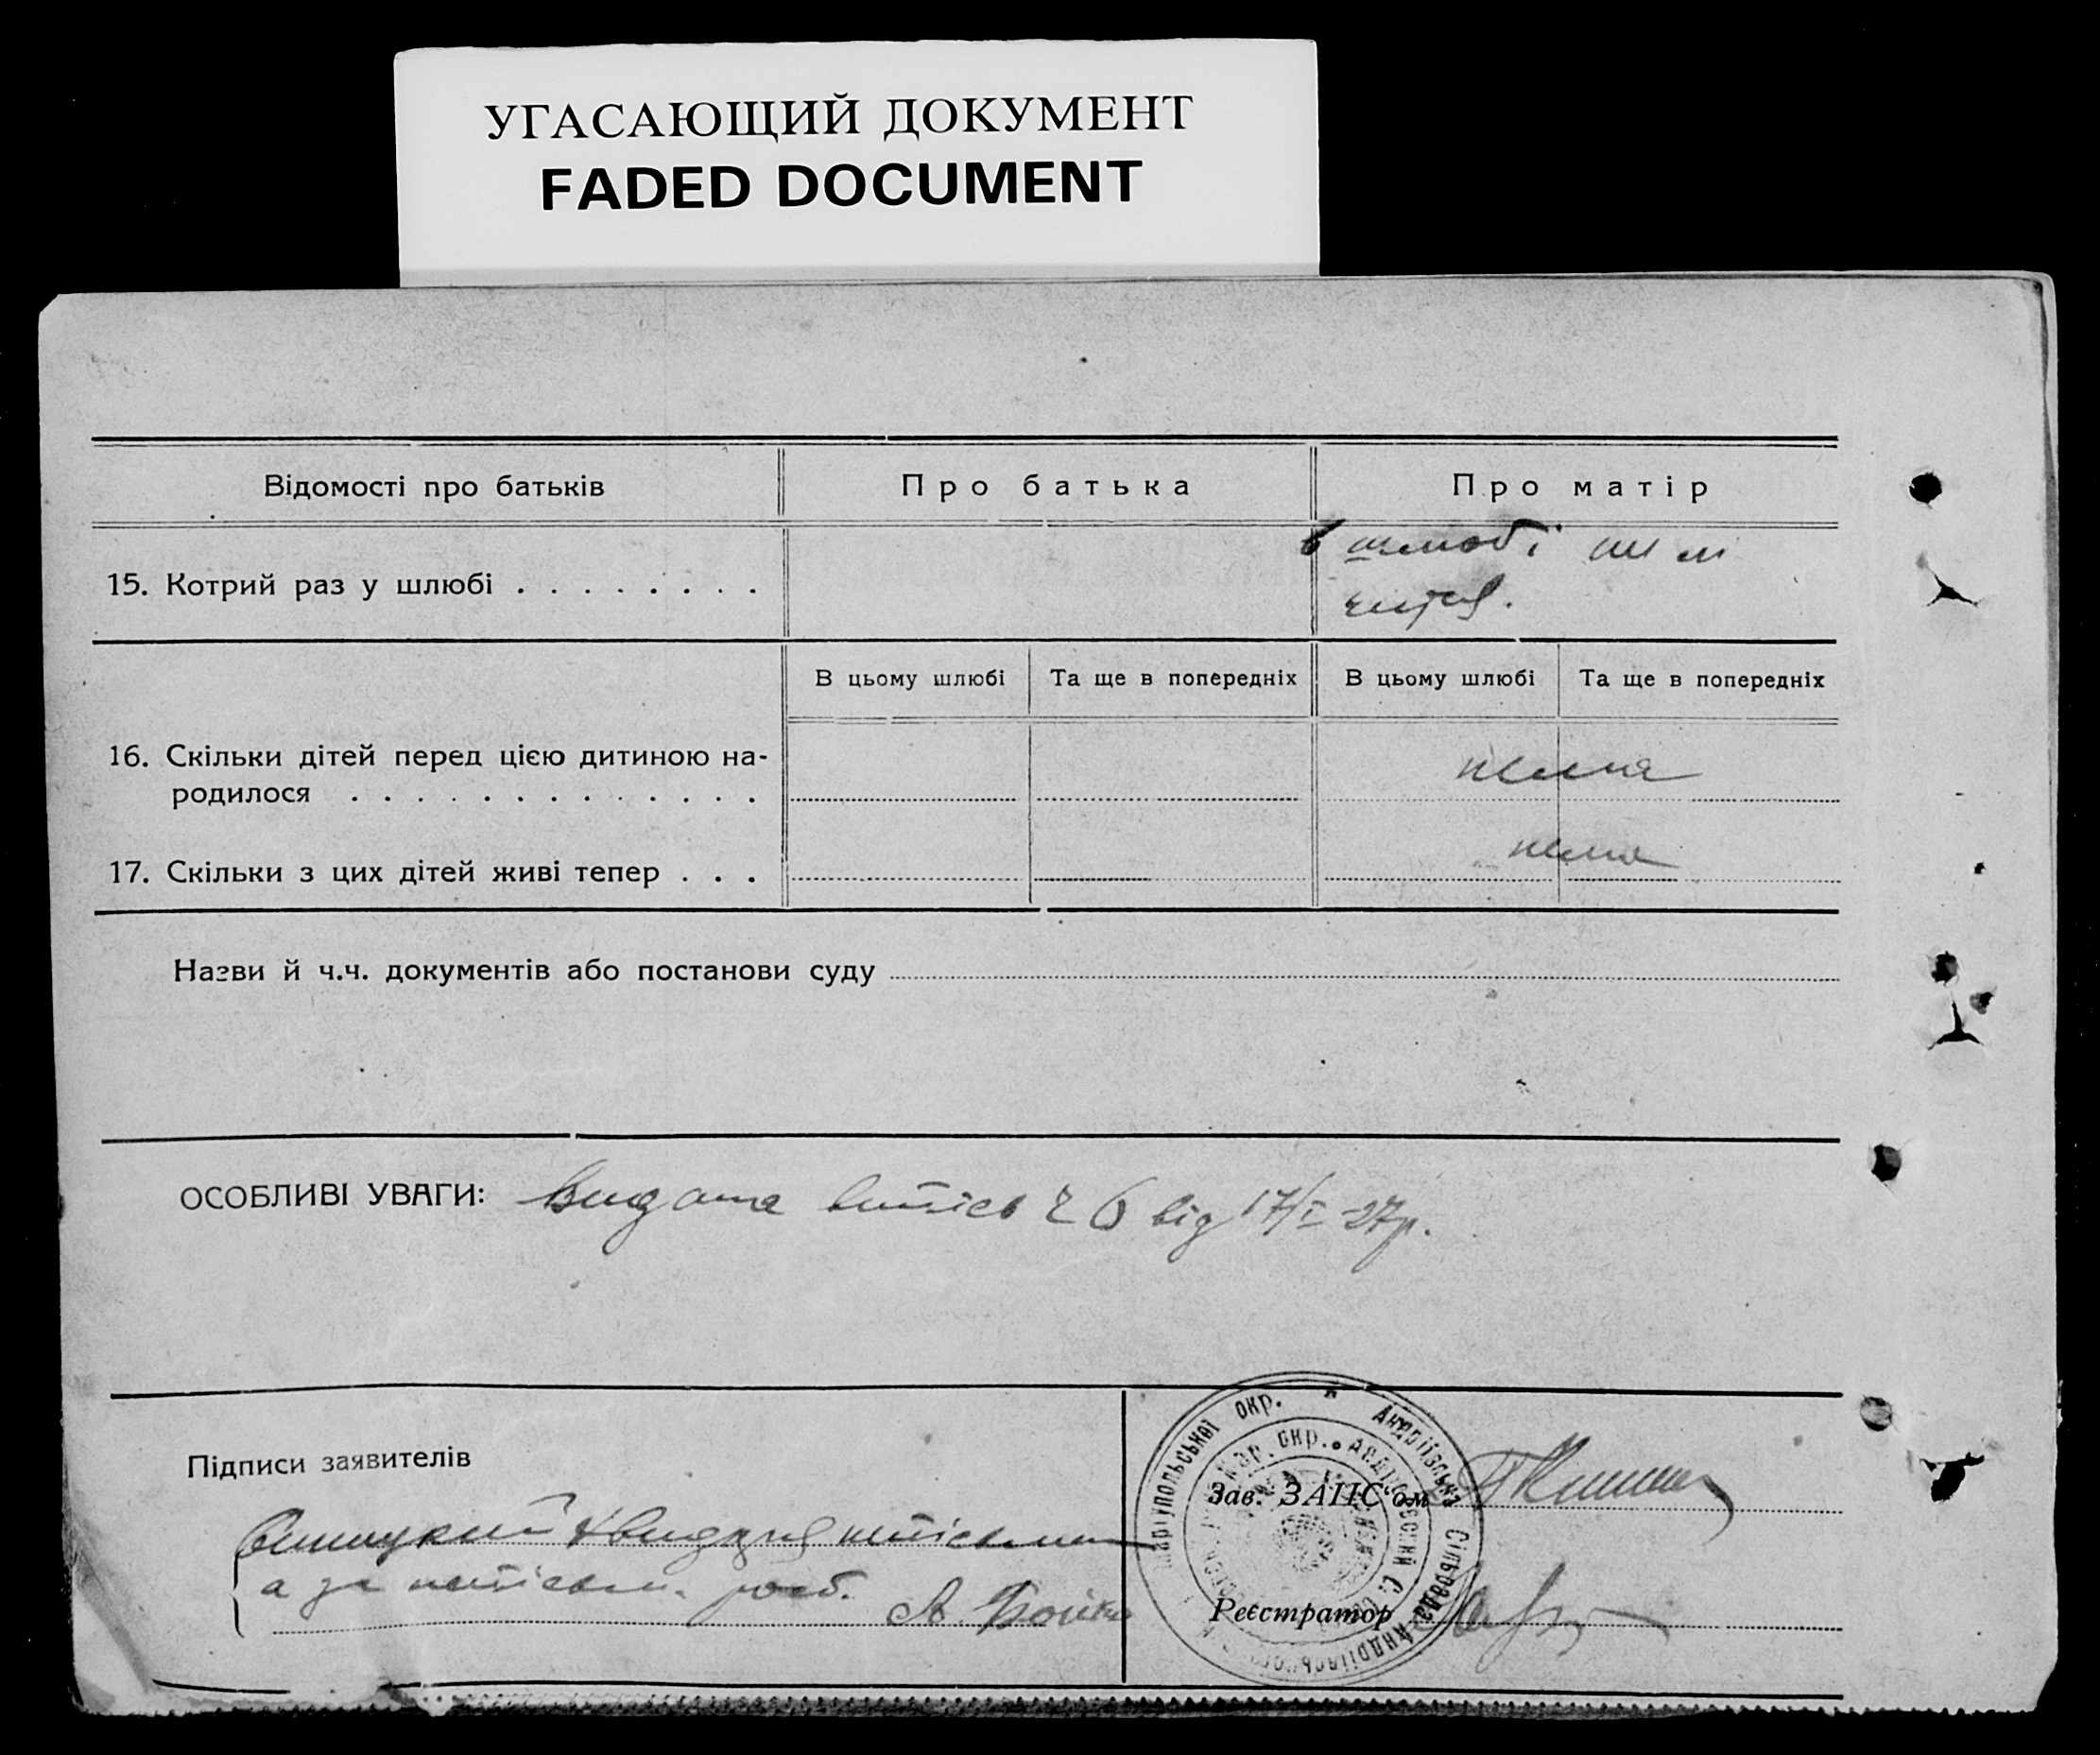 УГАСАЮЩИЙ ДОКУМЕНТ
FADED DOCUMENT
Відомості про батьків
Про батька
Про матір
15. Котрий раз у шлюбі . . . . . . . .
в шлюбі не
В цьому шлюбі
Та ще в попередніх
В цьому шлюбі
Та ще в попередніх
16. Скільки дітей перед цією дитиною на-
родилося . . . . . . . . . . . . .
нема
17. Скільки з цих дітей живі тепер . . .
нема
Назви й ч.ч. документів або постанови суду
ОСОБЛИВІ УВАГИ: Видана витяг ч 6 від 17/I-27р.
Підписи заявителів
Зав. ЗАПС'ом
а за
А. Бойко
Реєстратор
Маріупольської окр. * Андріївська Сільрада Андріївського